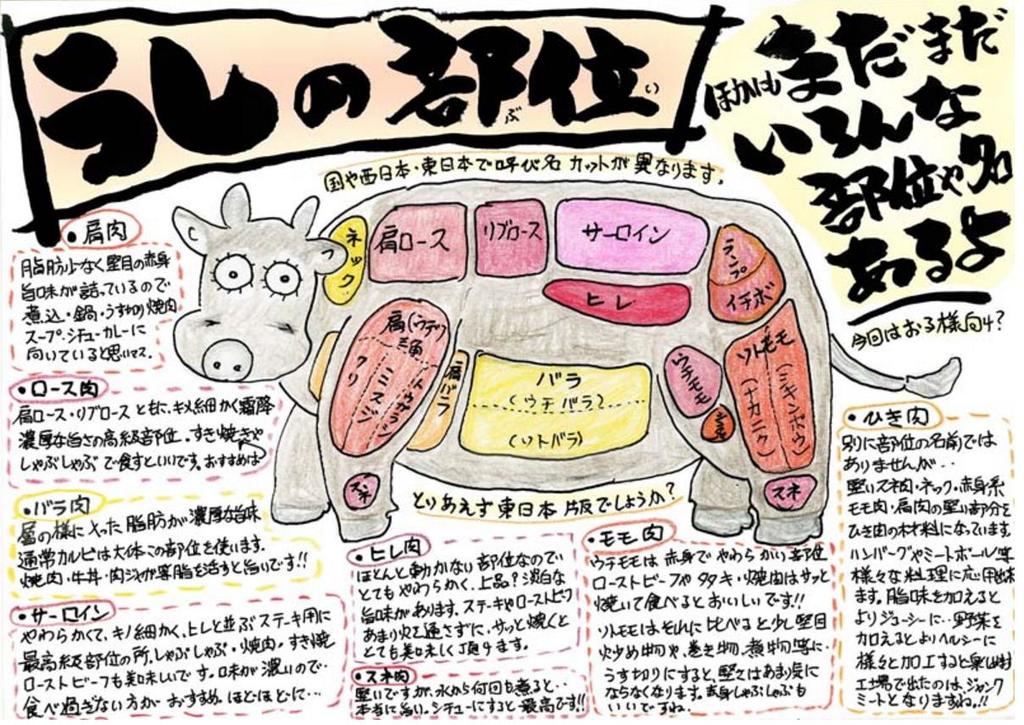 うしの部位
ぶ い
ほかにもまだまだ
いろんな
部位や名
あるよ
今回はおる様向け?
国や西日本・東日本で呼び名 カットが異なります。
ネック
肩ロース
リブロース
サーロイン
ヒレ
ランプ
イチボ
肩(ウデ)
三角
クリ
ミスジ
トウガラシ
肩バラ
バラ
(ウチバラ)
(ソトバラ)
ウチモモ
シンシン
ソトモモ
(ナカニク)
(シキンボウ)
スネ
スネ
とりあえず東日本版でしょうか?
・肩肉
脂肪少なく堅目の赤身
旨味が詰っているので
煮込・鍋・うすわり焼肉
スープ・シチュー・カレーに
向いていると思いマス。
・ロース肉
肩ロース・リブロース ともに、キメ細かく霜降
濃厚な旨さの高級部位。すき焼きや
しゃぶしゃぶで食すといいです。おすすめは
・バラ肉
層の様に入った脂肪が濃厚な旨味
通常カルビは大体この部位を使います。
焼肉・牛丼・肉じゃが等脂を活すと旨いです!!
・サーロイン
やわらかくて、キメ細かく、ヒレと並ぶステーキ用に
最高級部位の所。しゃぶしゃぶ・焼肉。すき焼
ローストビーフも美味しいです。味が濃いので‥
食べ過ぎない方が おすすめ。ほどほどに…
・ヒレ肉
ほとんど動かない部位なので
とてもやわらかく、上品?淡白な
旨味があります。ステーキやローストビーフ
あまり火を通さずに、サッと焼くと
とても美味しく頂けます。
・スネ肉
堅いですが、水から何回も煮ると‥
本当に旨い。シチューにすると最高です!!
・モモ肉
ウチモモは赤身でやわらかい部位
ローストビーフやタタキ・焼肉はサッと
焼いて食べるとおいしいです!!
ソトモモはそれに比べると少し堅目
炒め物や、巻き物、煮物等に‥
うす切りにすると、堅さはあまり気に
ならなくなります。赤身しゃぶしゃぶも
いいですね。
・ひき肉
別に部位の名前では
ありませんが‥
堅いスネ肉・ネック・赤身系
モモ肉・肩肉の堅い部分を
ひき肉の材料になっています。
ハンバーグやミートボール等
様々な料理に応用出来
ます。脂味を加えると
よりジューシーに…野菜を
加えるとよりヘルシーに
様々と加工すると楽しい材
工場で出たのは、ジャンク
ミートとなりますね。!!